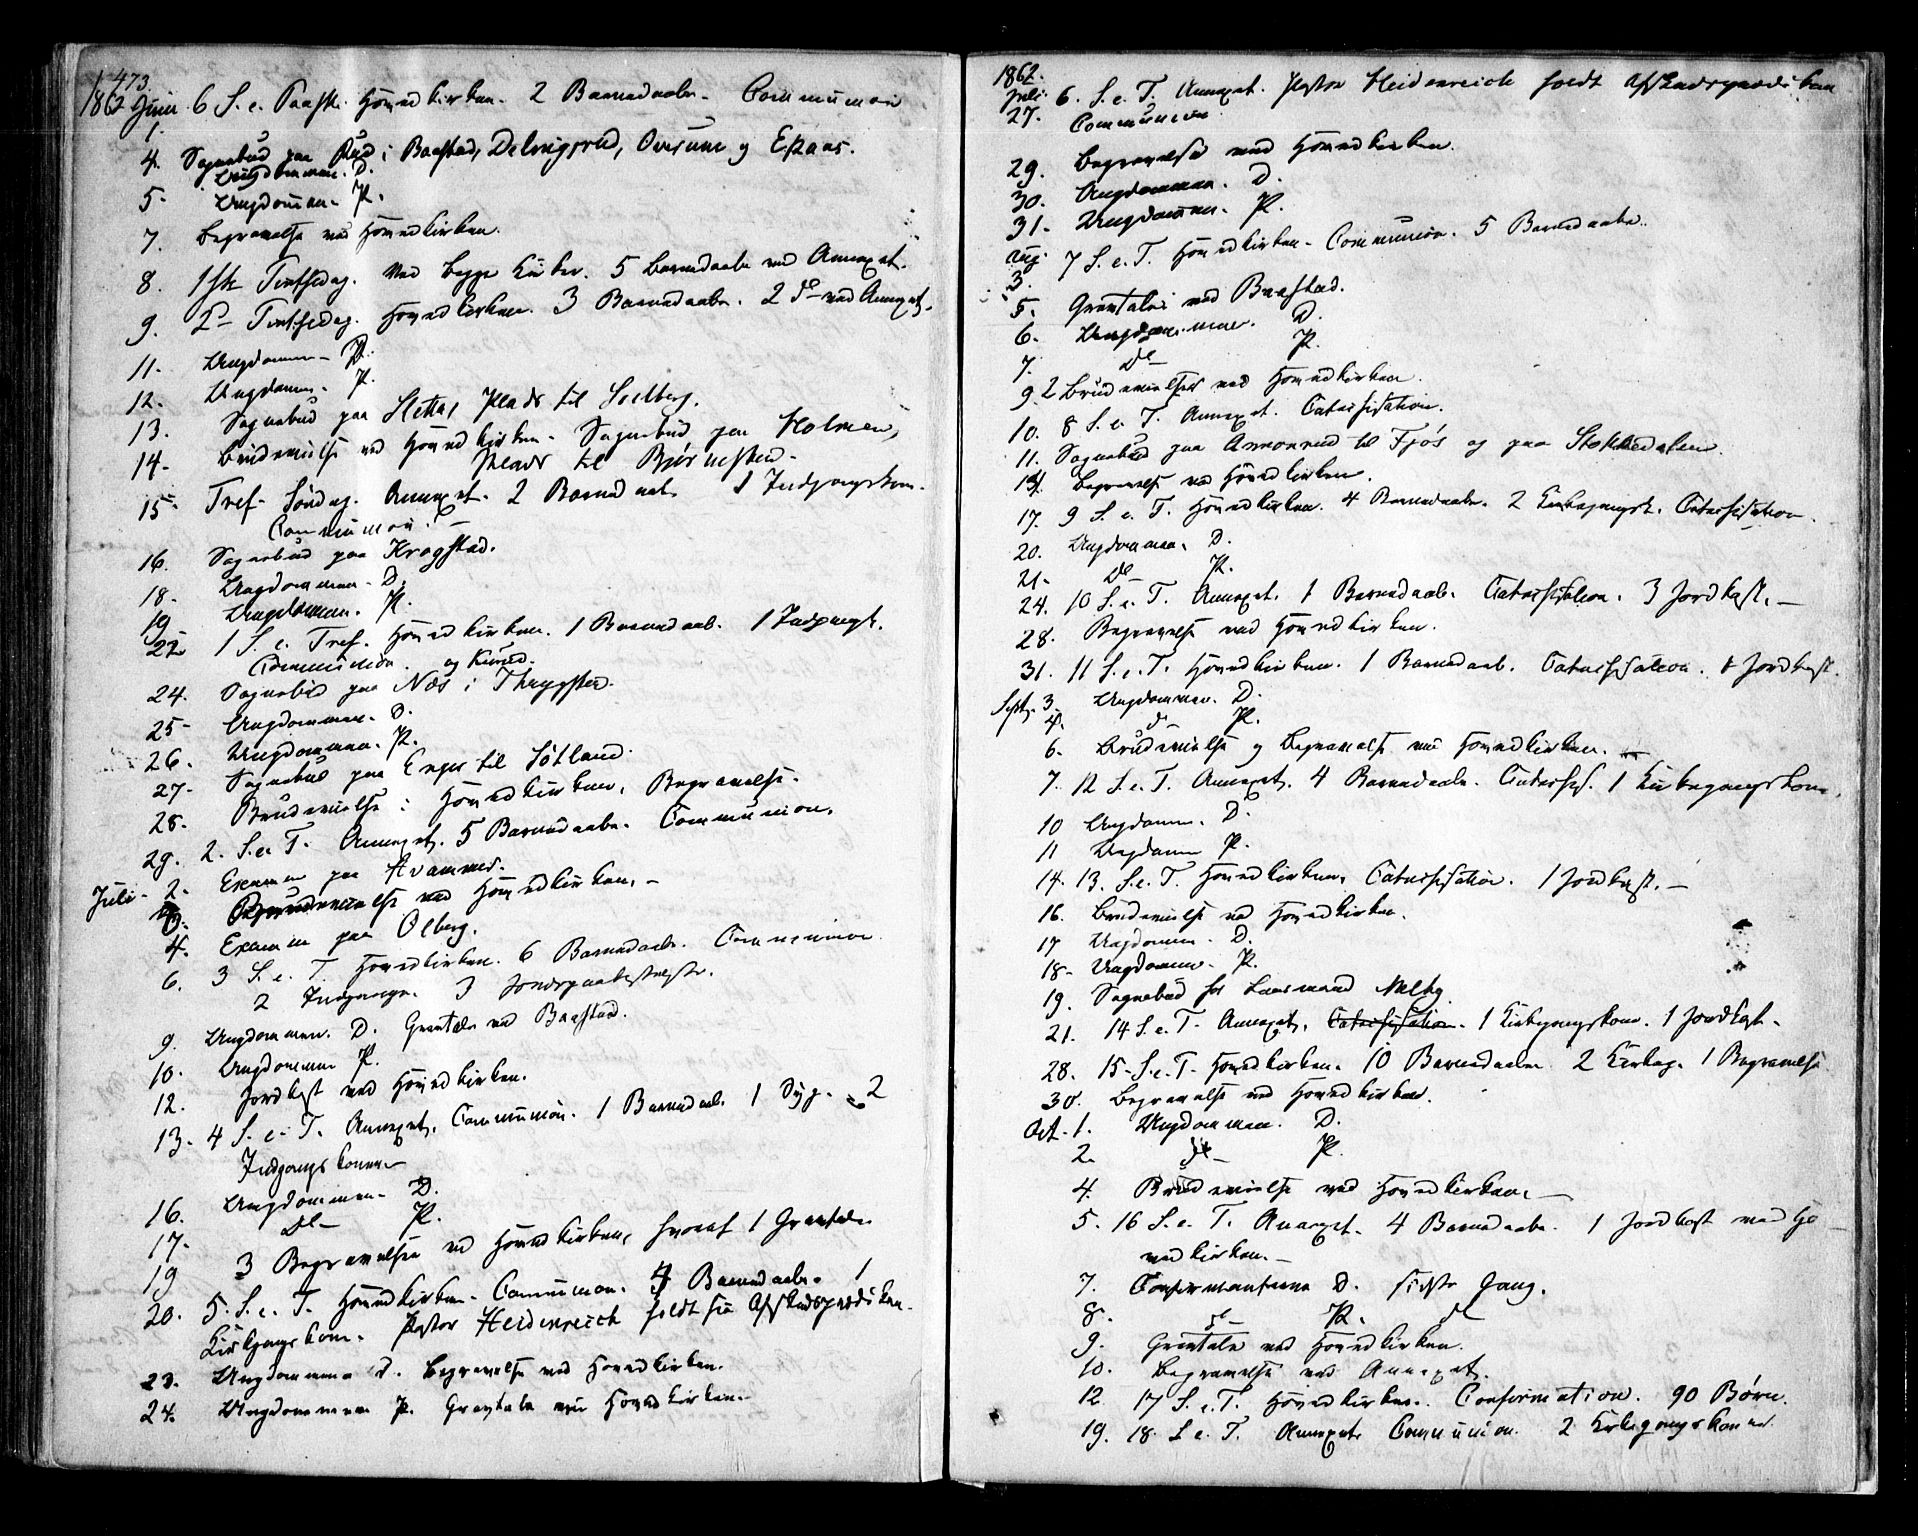 473.
1862 Juni 6 S. e. Paaske. Hovedkirken. 2 Barnedaabe. Communion
1.
4. Sognebud paa Rud i Baastad, Delingsrud, Oversum og Espaas.
Ungdommen. D.
5. Ungdommen. P.
7. Begravelse ved Hovedkirken.
8. 1ste Pintsedag. Ved begge Kirker. 5 Barnedaabe ved Annexet.
9. 2den Pintsedag. Hovedkirken. 3 Barnedaabe. 2 do ved Annexet.
11. Ungdommen D.
12. Ungdommen. P.
13. Sognebud paa Sletta, Plads til Solberg.
14. Brudevielse ved Hovedkirken. Sognebud paa Holmen,
Plads til Bjørnestad.
15. Tref. Søndag. Annexet. 2 Barnedaab. 1 Indgangskone.
Communion.
16. Sognebud paa Krogstad.
18. Ungdommen. D.
19. Ungdommen. P.
22. 1 S. e. Tref. Hovedkirken. 1 Barnedaab. 1 Indgangsk.
Communion.
24. Sognebud paa Næs i Thrygstad.
25. Ungdommen. D.
26. Ungdommen. P.
27. Sognebud paa Enger til Søtland.
28. Brudevielse i Hovedkirken, Begravelse.
29. 2. S. e. T. Annexet. 5 Barnedaabe. Communion.
Juli 2. Examen paa Hvammer.
Brudevielse ved Hovedkirken.
4. Examen paa Olberg.
6. 3 S. e. T. Hovedkirken. 6 Barnedaabe. Communion
2 Indgange. 3 Jordpaakastelse.
9. Ungdommen. D. Gravtale ved Baastad.
10. Ungdommen P.
12. Jordkast ved Hovedkirken.
13. 4 S. e. T. Annexet. Communion. 1 Barnedaab. 1 2
Indgangskoner
16. Ungdommen. D.
17. do P.
19 3 Begravelser ved Hovedkirken, hvoraf 1 Gravtale
20. 5. S. e. T. Hovedkirken. Communion. 4 Barnedaabe. 1
Kirkgangskone. Pastor Heidenreich holdt sin Afskedsprædiken.
23. Ungdommen D. Begravelse ved Hovedkirken.
24. Ungdommen P. Gravtale ved Hovedkirken.
1862.
Juli 27. 6. S. e. T. Annexet. Pastor Heidenreich holdt Afskedsprædiken
Communion
29. Begravelse ved Hovedkirken.
30. Ungdommen. D.
31. Ungdommen. P.
Aug. 3. 7 S. e. T. Hovedkirken. Communion. 5 Barnedaabe.
5. Gravtale ved Baastad.
6. Ungdommen. D.
7. do P.
9. 2 Brudevielser ved Hovedkirken.
10. 8 S. e. T. Annexet. Catechisation.
11. Sognebud paa til Fjøs og paa Stokkedalen.
Begravelse ved Hovedkirken.
17. 9 S. e. T. Hovedkirken. 4 Barnedaabe. 2 Kirkegangsk. Catechisation.
20. Ungdommen. D.
21. do P.
24. 10 S. e. T. Annexet. 1 Barnedaab. Catechisation. 3 Jordkast.
28. Begravelse ved Hovedkirken.
31. 11 S. e. T. Hovedkirken. 1 Barnedaab. Catechisation. 1 Jordkast.
Sept. 3. Ungdommen. D.
4. do P.
6. Brudevielse og Begravelse ved Hovedkirken.
7. 12 S. e. T. Annexet. 4 Barnedaabe. Catechis. 1 Kirkegangskone.
10 Ungdommen. D.
11 Ungdommen P.
14. 13. S. e. T. Hovedkirken. Catechisation. 1 Jordkast.
16. Brudevielse ved Hovedkirken.
17 Ungdommen. D.
18. Ungdommen. P.
19. Sognebud hos Lensmand Melby.
21. 14 S. e. T. Annexet. Catechisation. 1 Kirkegangskone. 1 Jordkast.
28. 15. S. e. T. Hovedkirken. 10 Barnedaabe 2 Kirkeg. 1 Begravelse
30. Begravelse ved Hovedkirken.
Oct. 1. Ungdommen. D.
2. do P.
4. Brudevielse ved Hovedkirken.
5. 16 S. e. T. Annexet. 4 Barnedaabe. 1 Jordkast ved Ho-
vedkirken.
7. Confirmanterne D. sidste Gang.
8. do P. do
9. Gravtale ved Hovedkirken.
10. Begravelse ved Annexet.
12. 17 S. e. T. Hovedkirken. Confirmation. 90 Børn.
19. 18 S. e. T. Annexet. Communion. 2 Kirkegangskoner